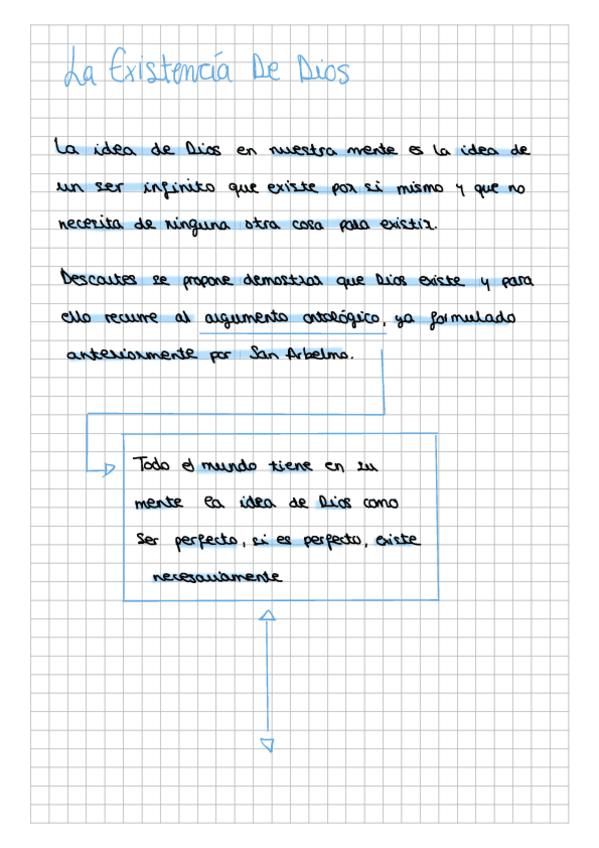 La Existencía De Dios
La idea de Dios en nuestra mente es la idea de
un ser infinito que existe por si mismo y que no
necesita de ninguna otra cosa para existir.
Descartes se propone demostrar que Dios existe y para
ello recurre al argumento ontológico, ya formulado
anteriormente por San Arbelmo.
Todo el mundo tiene en su
mente la idea de Dios como
Ser perfecto, si es perfecto, existe
necesariamente